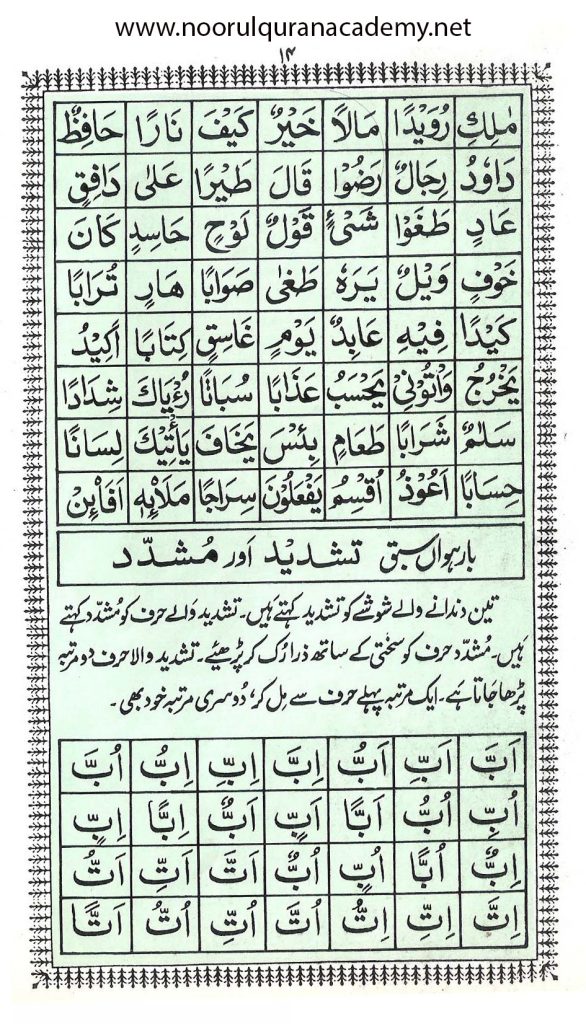 www.noorulquranacademy.net
۱۴
مٰلِكِ رُوَيْدًا مَالًا خَيْرٌ كَيْفَ نَارًا حَافِظٌ
دَاوٗدُ رِجَالٌ رَضُوْا قَالَ طَيْرًا عَلٰى دَافِقٍ
عَادٍ طَغَوْا شَىْءٍ قَوْلٌ لَوْحٍ حَاسِدٍ كَانَ
خَوْفٍ وَيْلٌ يَرَهٗ طَغٰى صَوَابًا هَارٍ تُرَابًا
كَيْدًا فِيْهِ عَابِدٌ يَوْمٍ غَاسِقٍ كِتَابًا اَكِيْدُ
يَخْرُجُ وَاْتُوْنِىْ يَحْسَبُ عَذَابًا سُبَاتًا رُءْيَاكَ شِدَادًا
سَلٰمٌ شَرَابًا طَعَامٍ بِئْسَ يَخَافُ يَاْتِيْكَ لِسَانًا
حِسَابًا اَعُوْذُ اُقْسِمُ يَفْعَلُوْنَ سِرَاجًا مَلَا۟ئِهٖ اَفَا۟ئِنْ
بارہواں سبق تشدید اور مُشدّد
تین دندانے والے شوشے کو تشدید کہتے ہیں۔ تشدید والے حرف کو مُشدّد کہتے
ہیں۔ مُشدّد حرف کو سختی کے ساتھ ذرا رُک کر پڑھیئے۔ تشدید والا حرف دو مرتبہ
پڑھا جاتا ہے۔ ایک مرتبہ پہلے حرف سے مِل کر، دُوسری مرتبہ خود بھی۔
اَبَّ اَبِّ اَبُّ اِبَّ اِبِّ اِبُّ اُبَّ
اُبِّ اُبُّ اَبًّا اَبٍّ اَبٌّ اِبًّا اِبٍّ
اِبٌّ اُبًّا اُبٍّ اُبٌّ اَتَّ اَتِّ اَتُّ
اِتَّ اِتِّ اِتُّ اُتَّ اُتِّ اُتُّ اَتًّا